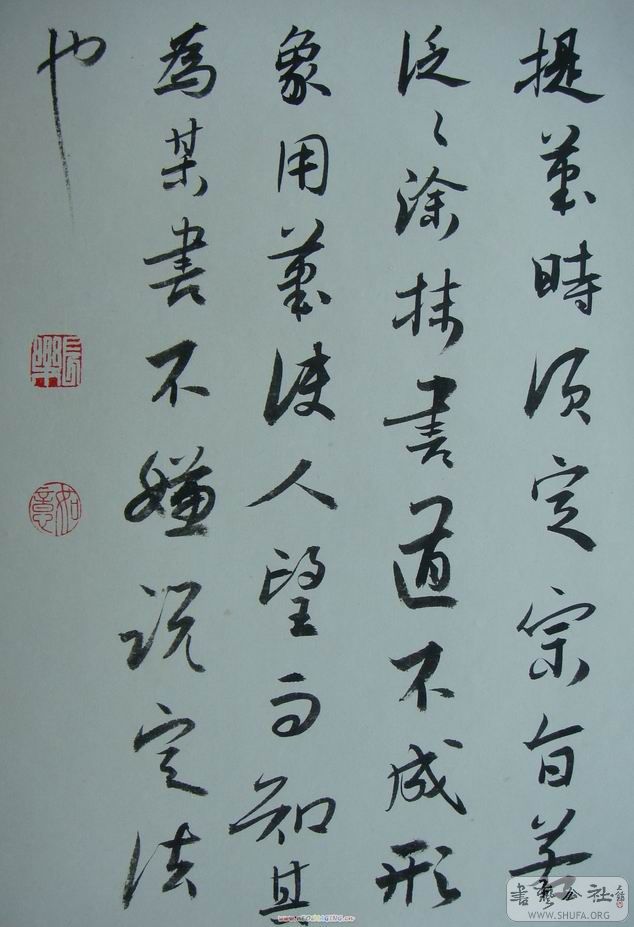 提筆時須定宗旨若
泛々涂抹書道不成形
象用筆使人望而知其
為某書不嫌說定法
也
長樂
如意
書藝公社
WWW.SHUFA.ORG